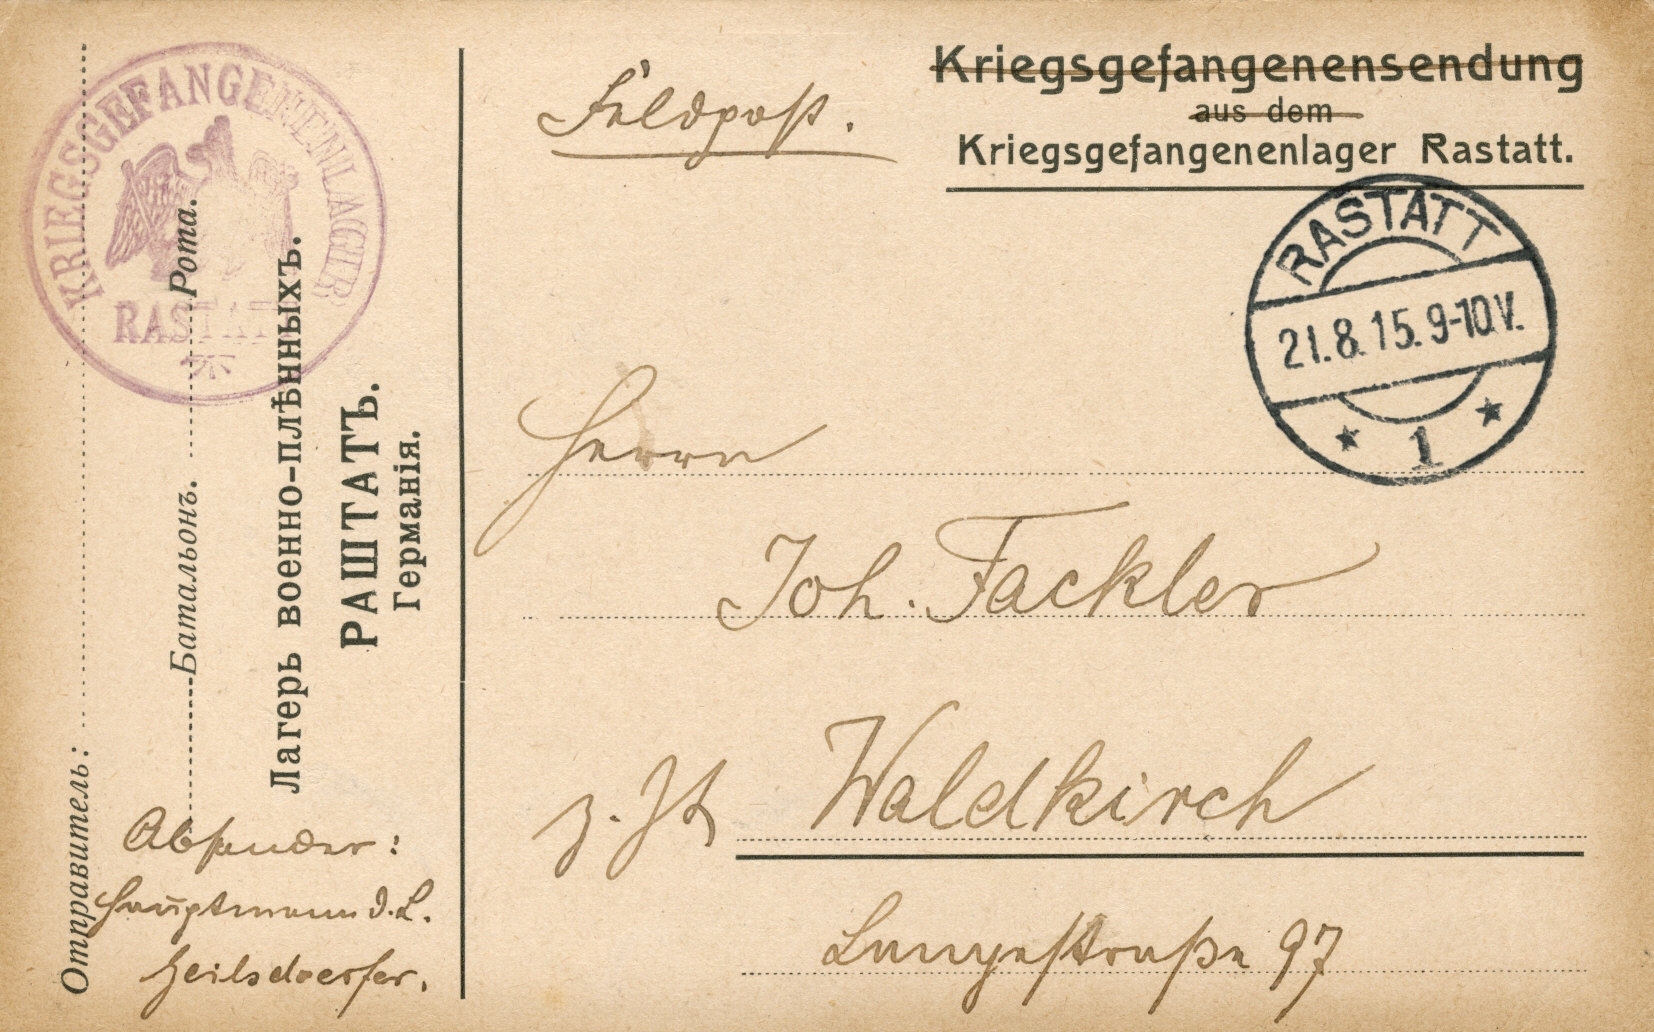 Feldpost.
Kriegsgefangenensendung
aus dem
Kriegsgefangenenlager Rastatt.
RASTATT
21.8.15.9-10V.
* 1 *
Herrn
Joh. Fackler
z. Zt Waldkirch
Langestraße 97
KRIEGSGEFANGENENLAGER
RASTATT
Отправитель:
Батальонъ. Рота.
Лагерь военно-плѣнныхъ.
РАШТАТЪ.
Германія.
Absender:
Hauptmann d. L.
Heilsdoerfer.